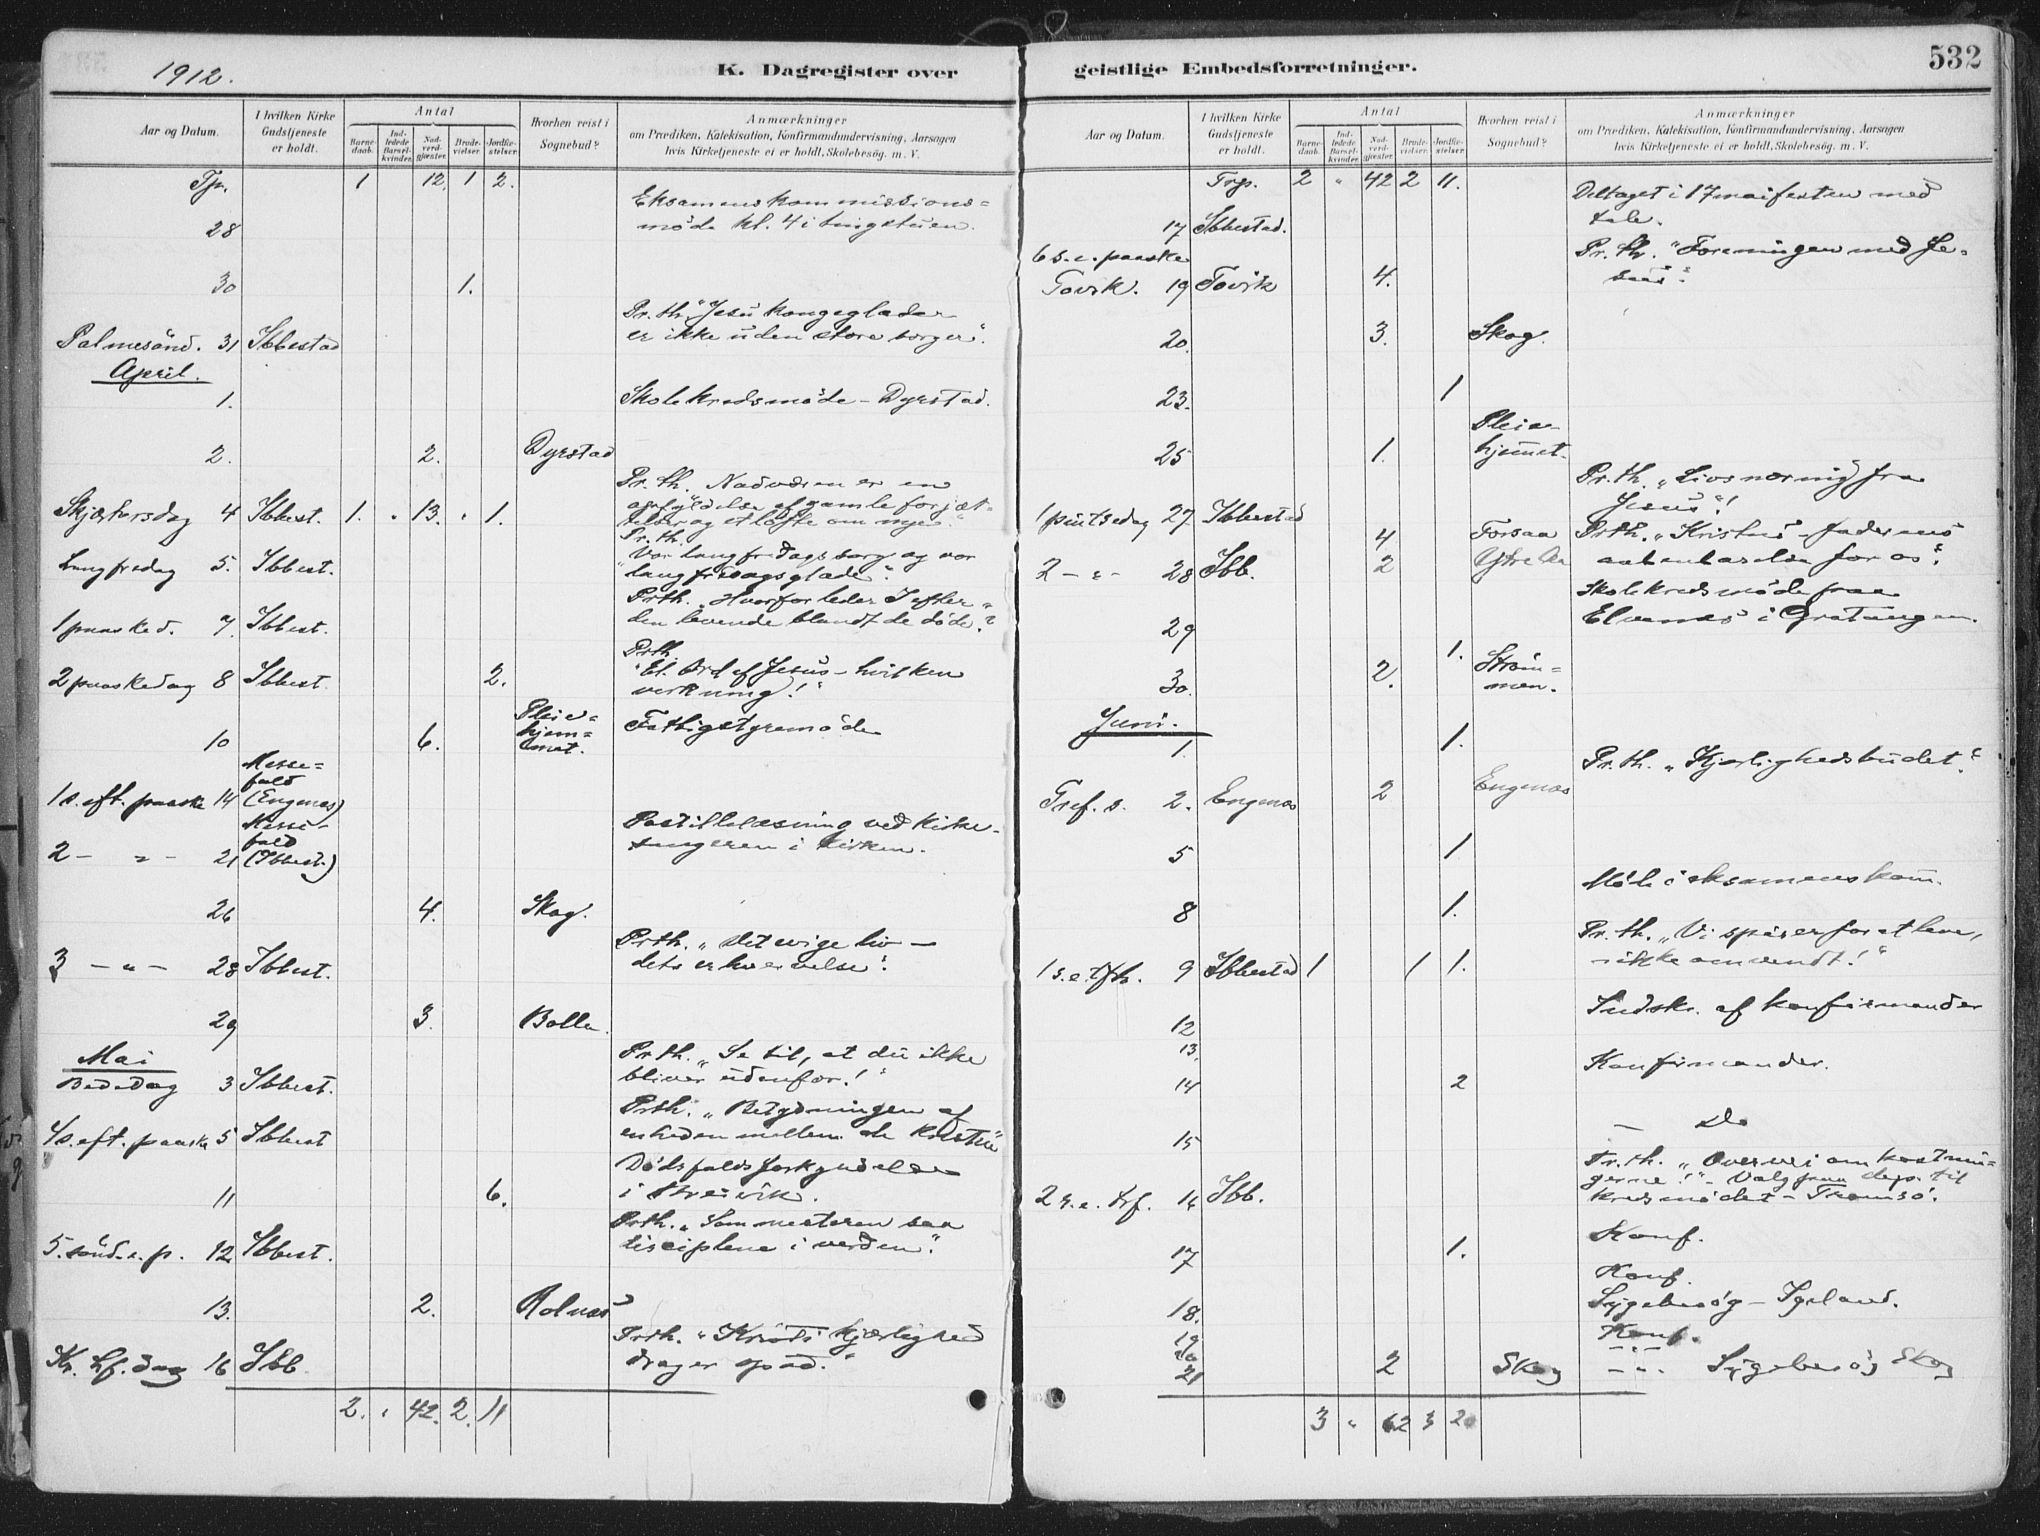 1912.
K. Dagregister over
Aar og Datum.
I hvilken Kirke Gudstjeneste er holdt.
Antal
Barnedaab.
Indledede Barselkvinder.
Nadverdgjæster.
Brudevielser.
Jordfæstelser.
Hvorhen reist i Sognebud?
Anmærkninger
om Prædiken, Katekisation, Konfirmandundervisning, Aarsagen
hvis Kirketjeneste ei er holdt, Skolebesøg. m. V.
Tp. 1 12. 1 2.
28 Eksamenskommissions=
möde kl. 4 i tingstuen.
30 1.
Palmesönd. 31 Ibbestad Pr. th. "Jesu kongeglæder
er ikke uden store sorger".
April.
1. Skolekredsmöde - Dyrstad.
2. 2. Dyrstad
Skjærtorsdag 4 Ibbest. 1. " 13. " 1. Pr. th. Nadveren er en
opfyldelse af gamle forjæt-
telser og et löfte om nye."
Langfredag 5. Ibbest. Pr. th.
"Vor langfredagssorg og vor
langfredagsglæde".
1 paasked. 7. Ibbest. Prth. "Hvorfor leder I efter
den levende blandt de döde?"
2 paaskedag 8 Ibbest. 2. Prth.
"Et Ord af Jesus - hvilken
virkning!"
10 6. Pleie=
hjem=
met. Fattigstyremöde
1 s. eft. paaske 14 Messe=
fald
(Engenæs)
2 - " - 21 Messe-
fald
(Ibbest.) Postillelæsning ved kirke-
sangeren i kirken.
26 4. Skog.
3 - " - 28 Ibbest. Prth. "Det evige liv -
dets erhvervelse".
29 3. Bolla.
Mai
Bededag 3 Ibbest. Prth. "Se til, at du ikke
bliver udenfor!"
4 s. eft. paaske 5 Ibbest Prth. "Betydningen af
enheden mellem de kristne"
11 6. Dødsfaldsforkyndelse
i Breivik.
5. sönd. e. p. 12. Ibbest. Prth. "Som mesteren saa
disciplene i verden".
13. 2. Rolnæs
Kr. Hf. dag 16 Ibb. Prth. "Kristi kjærlighed
drager opad."
2. " 42. 2. 11
geistlige Embedsforretninger.
532
Aar og Datum.
I hvilken Kirke Gudstjeneste er holdt.
Antal
Barnedaab.
Indledede Barselkvinder.
Nadverdgjæster.
Brudevielser.
Jordfæstelser.
Hvorhen reist i Sognebud?
Anmærkninger
om Prædiken, Katekisation, Konfirmandundervisning, Aarsagen
hvis Kirketjeneste ei er holdt, Skolebesøg. m. V.
Trp. 2 " 42 2 11.
17 Ibbestad. Deltaget i 17maifesten med
tale.
6 s. e. paaske
Tovik. 19 Tovik 4. Pr. th. "Foreningen med Je-
sus".
20. 3. Skog.
23. 1
25 1. Pleie-
hjemmet.
1 pintsedag 27. Ibbestad Pr. th. "Livsnæring fra
Jesus"!
2 - " - 28 Ibb. 4 Forsaa
2 Prth. "Kristus - faderens
aabenbarelse for os".
29 Skolekredsmöde paa
Elvenes i Gratangen.
30. 2. 1. Strøm=
men.
Juni.
1. 1.
Tref. s. 2. Engenæs 2 Engenæs Pr. th. "Kjærlighedsbudet".
5 1
8 1. Möte i eksamenskom.
1 s. e. trf. 9 Ibbestad 1 1 1. Pr. th. "Vi spiser for at leve,
- ikke omvendt!"
12 Indskr. af konfirmander
13.
14 2 Konfirmander.
15 - Do
2 s. e. trf. 16 Ibb. Pr. th. "Overvei omkostnin=
gerne!" - Valg paa dep. til
kredsmödet - Tromsö.
17 1. Konf.
18. Konf.
Sygebesög - Igeland.
19 Konf.
20
21 2 Skog - " - Sygebesög Skog
3 " 62 3 20